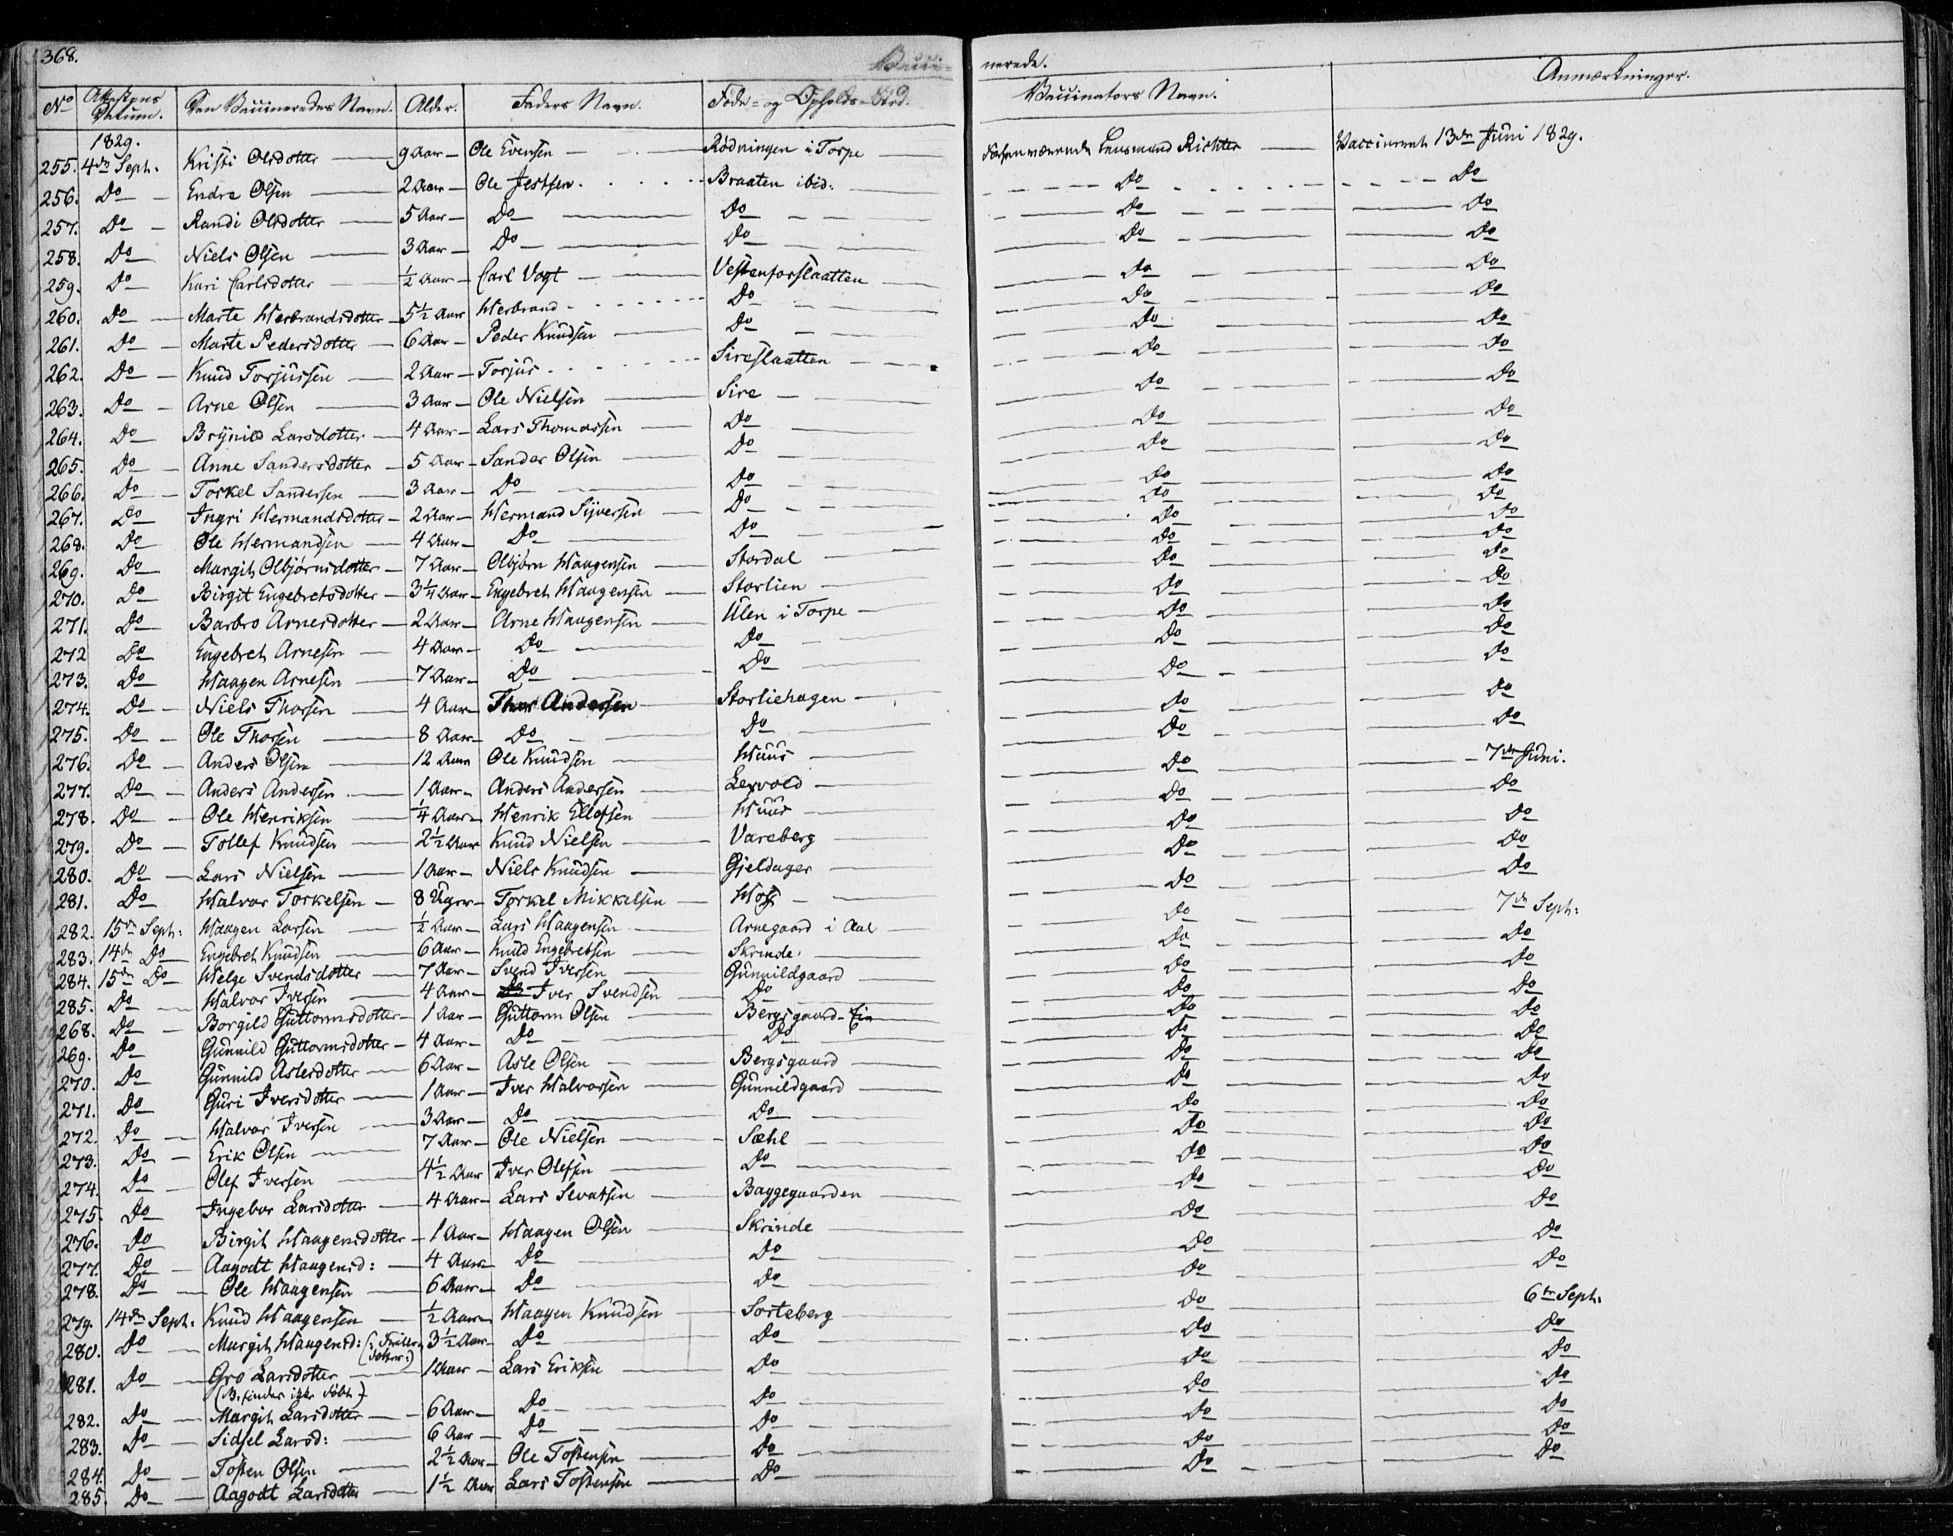 368. Vacci= nerede.
No Attestens Datum. Den Vaccineredes Navn. Alder. Faders Navn. Føde- og Opholds-Sted. Vaccinators Navn. Anmærkninger.
1829.
255. 4de Sept. Kristi Olsdotter 9 Aar Ole Evensen Rødningen i Torpe Forhenværende Lensmand Richter Vaccineret 13de Juni 1829.
256. Do Endre Olsen 2 Aar Ole Jestsen Braaten ibid. Do Do
257. Do Randi Olsdotter 5 Aar Do Do Do Do
258. Do Niels Olsen 3 Aar Do Do Do Do
259. Do Kari Carlsdotter ½ Aar Carl Vogt Vestenforslaatten Do Do
260. Do Marte Herbrandsdotter 5½ Aar Herbrand Do Do Do
261. Do Marte Pedersdotter 6 Aar Peder Knudsen Do Do Do
262. Do Knud Torjussen 2 Aar Torjus Sireslaatten Do Do
263. Do Arne Olsen 3 Aar Ole Nielsen Sire Do Do
264. Do Brynild Larsdotter 4 Aar Lars Thomassen Do Do Do
265. Do Anne Sandersdotter 5 Aar Sander Olsen Do Do Do
266. Do Torkel Sandersen 3 Aar Do Do Do Do
267. Do Ingri Hermandsdotter 2 Aar Hermand Syversen Do Do Do
268. Do Ole Hermandsen 4 Aar Do Do Do Do
269. Do Margit Olbjørnsdotter 7 Aar Olbjørn Haagensen Stordal Do Do
270. Do Birgit Engebretsdotter 3¼ Aar Engebret Haagensen Storlien Do Do
271. Do Barbro Arnesdotter 2 Aar Arne Haagensen Ulen i Torpe Do Do
272 Do Engebret Arnesen 4 Aar Do Do Do Do
273. Do Haagen Arnesen 7 Aar Do Do Do Do
274. Do Niels Thorsen 4 Aar Thor Andersen Storliehagen Do Do
275. Do Ole Thorsen 8 Aar Do Do Do Do
276. Do Anders Olsen 12 Aar Ole Knudsen Huus Do 7de Juni.
277. Do Anders Andersen 1 Aar Anders Andersen Lexvold Do Do
278. Do Ole Henriksen ¼ Aar Henrik Ellefsen Huus Do Do
279. Do Tollef Knudsen 2½ Aar Knud Nielsen Vareberg Do Do
280. Do Lars Nielsen 1 Aar Niels Knudsen Gjeldager Do Do
281. Do Halvor Torkelsen 8 Uger Torkel Mikkelsen Hof Do 7de Sept:
282. 15de Sept: Haagen Larsen ½ Aar Lars Haagensen Arnegaard i Aal Do Do
283. 14de Do Engebret Knudsen 6 Aar Knud Engebretsen Skrinde Do Do
284. 15de Do Helge Svendsdotter 7 Aar Svend Iversen Gunnildgaard Do Do
285. Do Halvor Iversen 4 Aar Iver Svendsen Do Do Do
268. Do Borgild Guttormsdotter 1 Aar Guttorm Olsen Bergsgaard-Eie Do Do
269. Do Gunnild Guttormsdotter 4 Aar Do Do Do Do
270. Do Gunnild Aslesdotter 6 Aar Asle Olsen Bergsgaard Do Do
271. Do Guri Iversdotter 1 Aar Iver Halvorsen Gunnildgaard Do Do
272. Do Halvor Iversen 3 Aar Do Do Do Do
273. Do Erik Olsen 7 Aar Ole Nielsen Sæhl Do Do
274. Do Olef Iversen 4½ Aar Iver Olefsen Do Do Do
275. Do Ingebor Larsdotter 4 Aar Lars Sevatsen Baggegaarden Do Do
276. Do Birgit Haagensdotter 1 Aar Haagen Olsen Skrinde Do Do
277. Do Aagodt Haagensd: 4 Aar Do Do Do Do
278. Do Ole Haagensen 6 Aar Do Do Do 6te Sept:
279. 14de Sept: Knud Haagensen ½ Aar Haagen Knudsen Sorteberg Do Do
280. Do Margit Haagensd: 3½ Aar Do Do Do Do
281. Do Gro Larsdotter 1 Aar Lars Eriksen Do Do Do
282. Do Margit Larsdotter 6 Aar Do Do Do Do
283. Do Sidsel Larsd: 6 Aar Do Do Do Do
284. Do Tosten Olsen 2½ Aar Ole Tostensen Do Do Do
285. Do Aagodt Larsdotter 1½ Aar Lars Tostensen Do